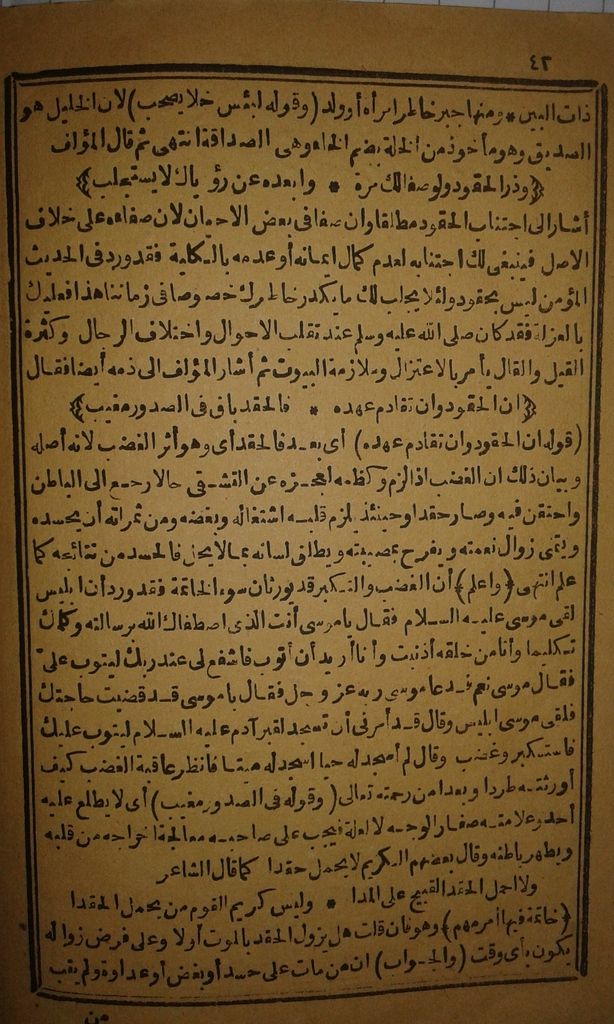 ٤٢
ذات البين * ومنها جبر خاطر امرأة أو ولد (وقوله لبئس خلا يصحب) لان الخليل هو
الصديق وهو مأخوذ من الخلة بضم الخاء وهى الصداقة انتهى ثم قال المؤلف
﴿وذر الحقود ولو صفا لك مرة * وابعده عن رؤياك لا يستجلب﴾
أشار الى اجتناب الحقود مطلقا وان صفا فى بعض الاحيان لان صفاءه على خلاف
الاصل فينبغى لك اجتنابه لعدم كمال ايمانه أو عدمه بالكلية فقد ورد فى الحديث
المؤمن ليس بحقود ولئلا يجلب لك ما يكدر خاطرك خصوصا فى زماننا هذا فعليك
بالعزلة فقد كان صلى الله عليه وسلم عند تقلب الاحوال واختلاف الرجال وكثرة
القيل والقال يأمر بالاعتزال وملازمة البيوت ثم أشار المؤلف الى ذمه أيضا فقال
﴿ان الحقود وان تقادم عهده * فالحقد باق فى الصدور مغيب﴾
(قوله ان الحقود وان تقادم عهده) أى بعد فالحقد أى وهو أثر الغضب لانه أصله
وبيان ذلك ان الغضب اذا لزم وكظمه لعجزه عن التشفى حالا رجع الى الباطن
واحتقن فيه وصار حقدا وحينئذ يلزم قلبه استثقاله وبغضه ومن ثمراته أن يحسده
ويتمنى زوال نعمته ويفرح بمصيبته ويطلق لسانه بما لا يحل فالحسد من نتائجه كما
علم انتهى ﴿واعلم﴾ أن الغضب والتكبر قد يورثان سوء الخاتمة فقد ورد أن ابليس
لقى موسى عليه السلام فقال يا موسى أنت الذى اصطفاك الله برسالته وكلمك
تكليما وأنا من خلقه أذنبت وأنا أريد أن أتوب فاشفع لى عند ربك ليتوب على
فقال موسى نعم فدعا موسى ربه عز وجل فقال يا موسى قد قضيت حاجتك
فلقى موسى ابليس وقال قد أمرنى أن تسجد لقبر آدم عليه السلام ليتوب عليك
فاستكبر وغضب وقال لم أسجد له حيا أسجد له ميتا فانظر عاقبة الغضب كيف
أورثته طردا وبعدا من رحمته تعالى (وقوله فى الصدور مغيب) أى لا يطلع عليه
أحد وعلامته صفار الوجه لا لعلة فيجب على صاحبه معالجة اخراجه من قلبه
ويطهر باطنه وقال بعضهم الكريم لا يحمل حقدا كما قال الشاعر
ولا احمل الحقد القبيح على المدا * وليس كريم القوم من يحمل الحقدا
﴿خاتمة فيها أمر مهم﴾ وهو فان قلت هل يزول الحقد بالموت أولا وعلى فرض زواله
يكون بأى وقت (والجواب) ان من مات على حسد أو بغض أو عداوة ولم يتب
من